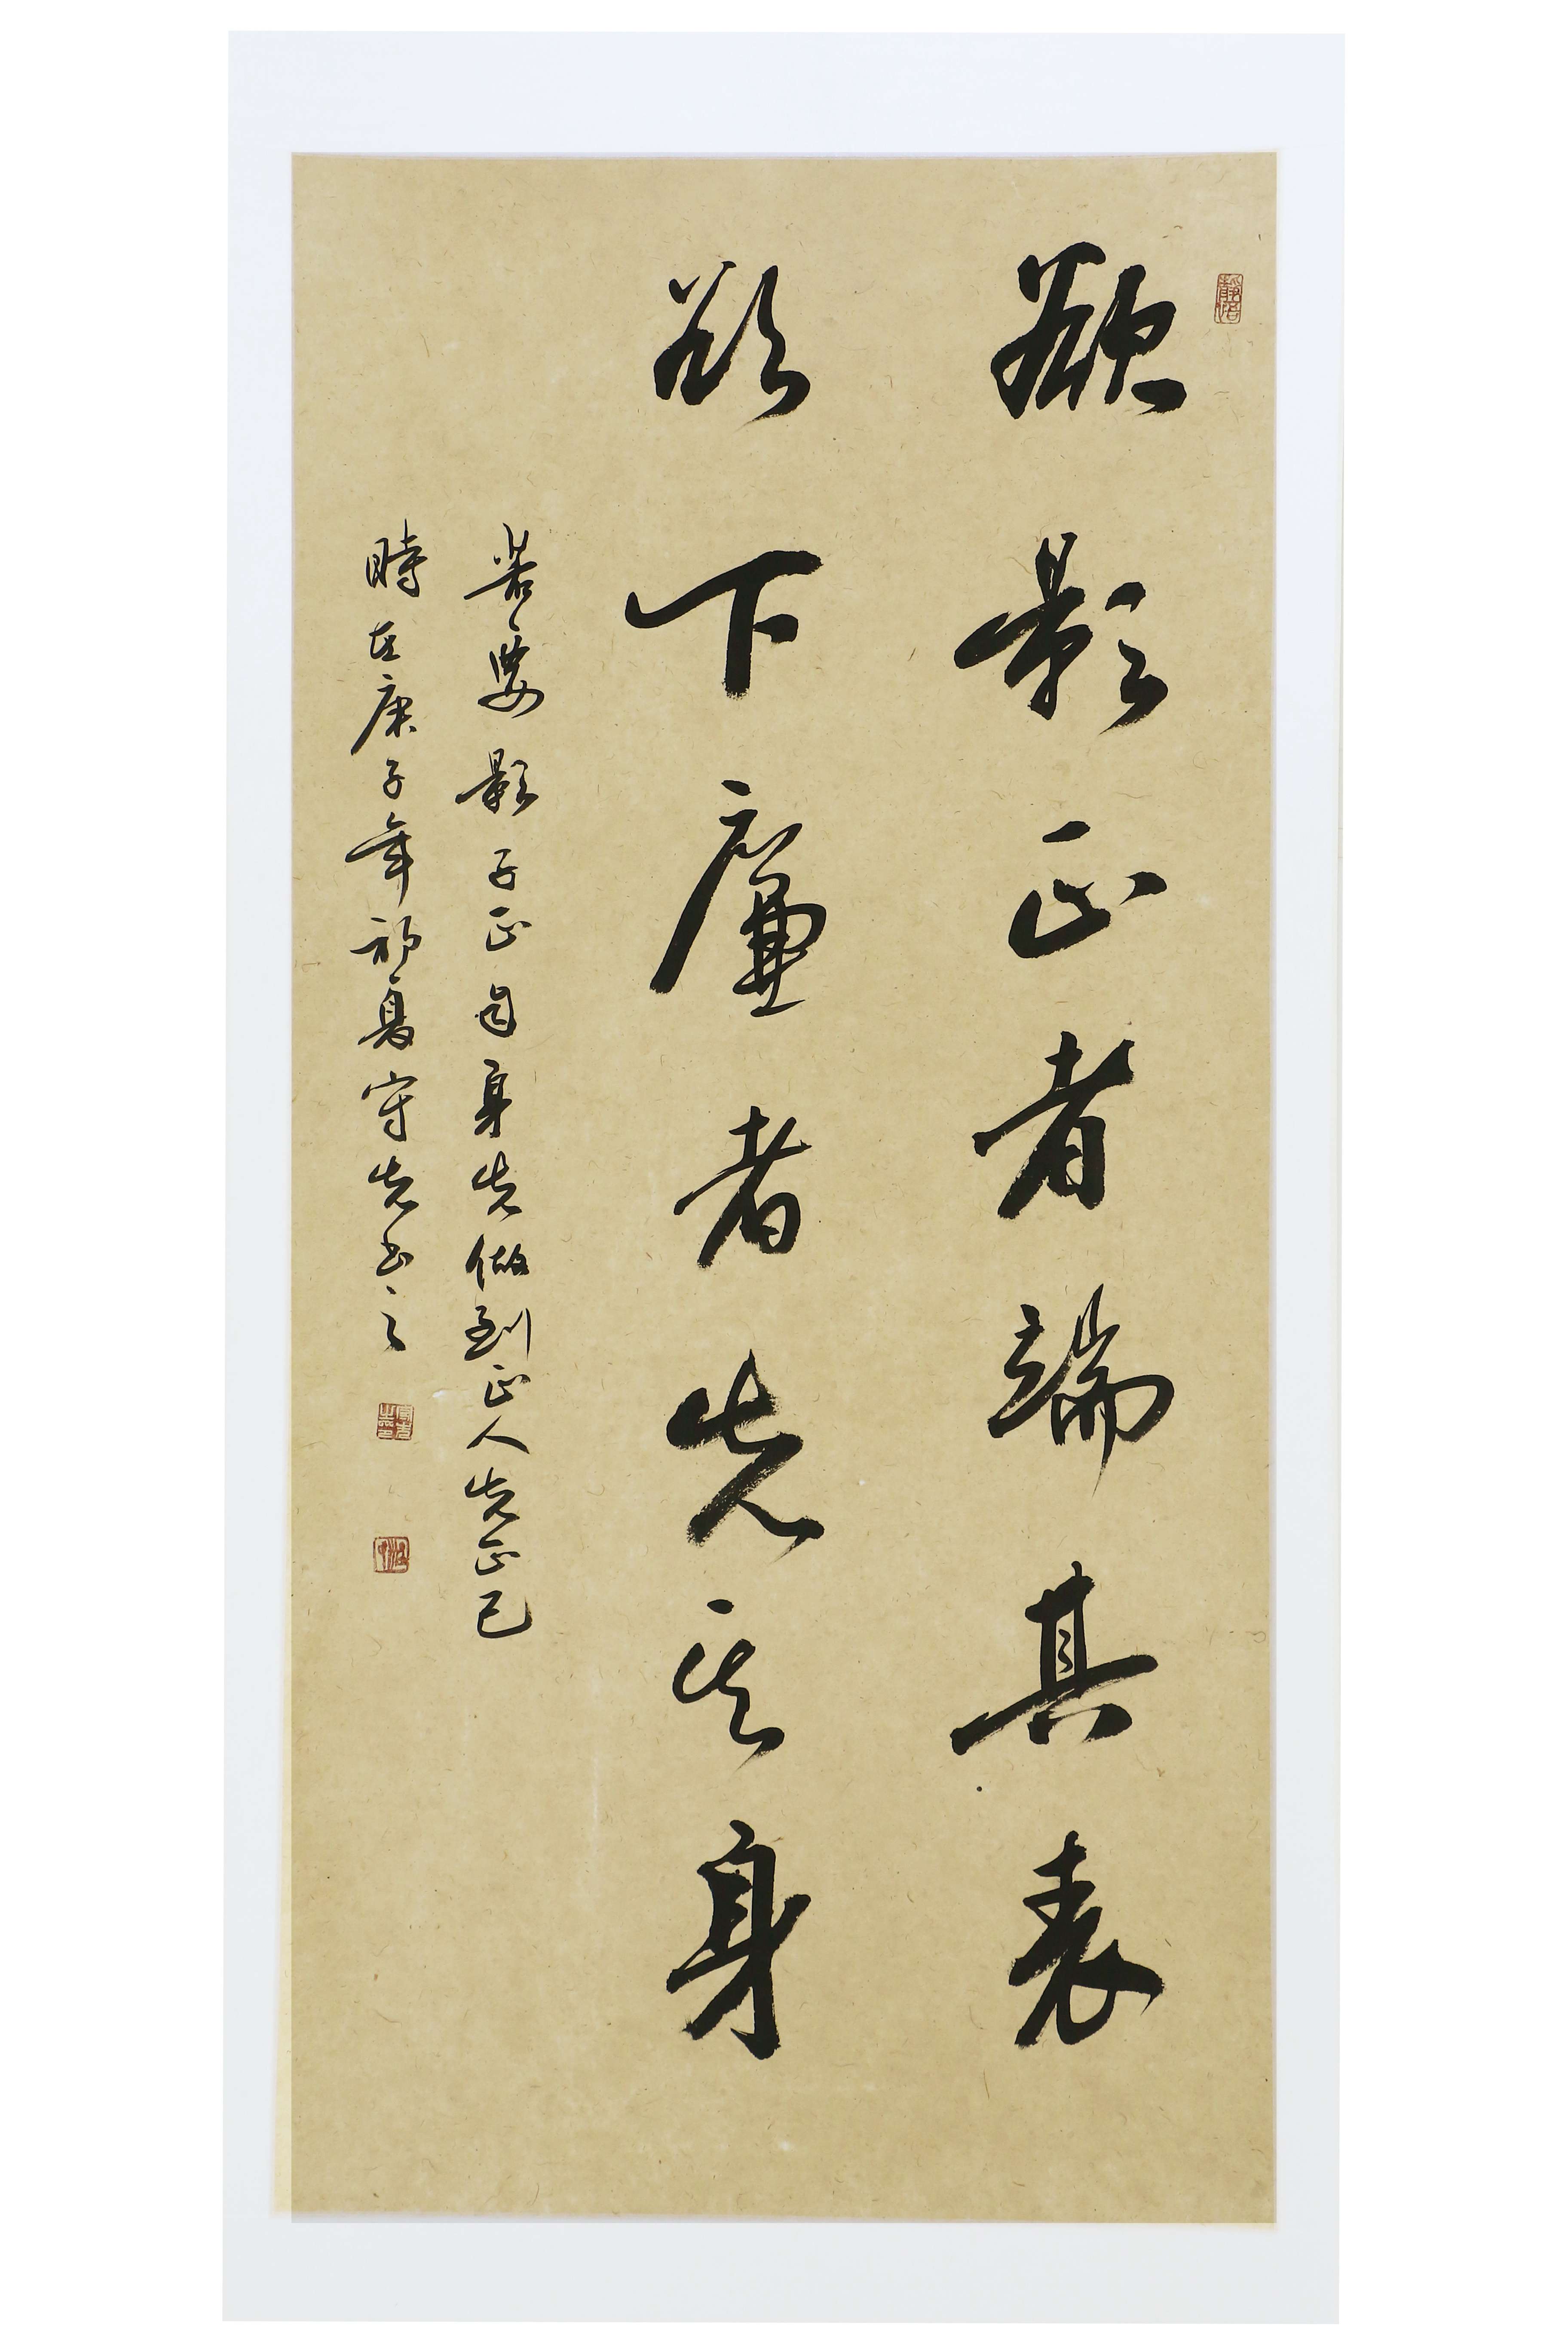 欲影正者端其表
欲下廉者先其身
若要影子正自身先做到正人先正己
時在庚子年初夏守先书之
靜悟